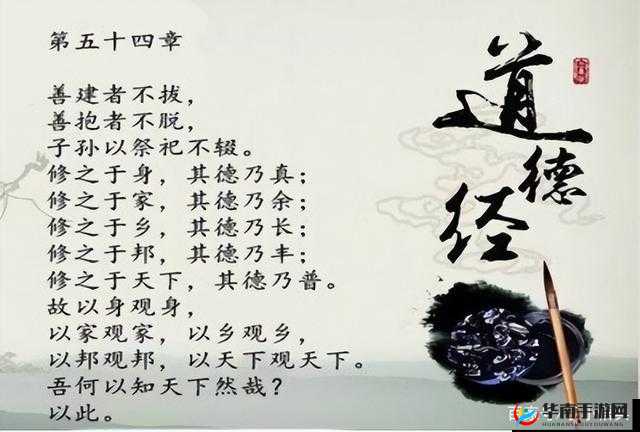 第五十四章
善建者不拔，
善抱者不脱，
子孙以祭祀不辍。
修之于身，其德乃真；
修之于家，其德乃余；
修之于乡，其德乃长；
修之于邦，其德乃丰；
修之于天下，其德乃普。
故以身观身，
以家观家，以乡观乡，
以邦观邦，以天下观天下。
吾何以知天下然哉？
以此。
道德经
华南手游网
HUANANSHOUYOUWANG